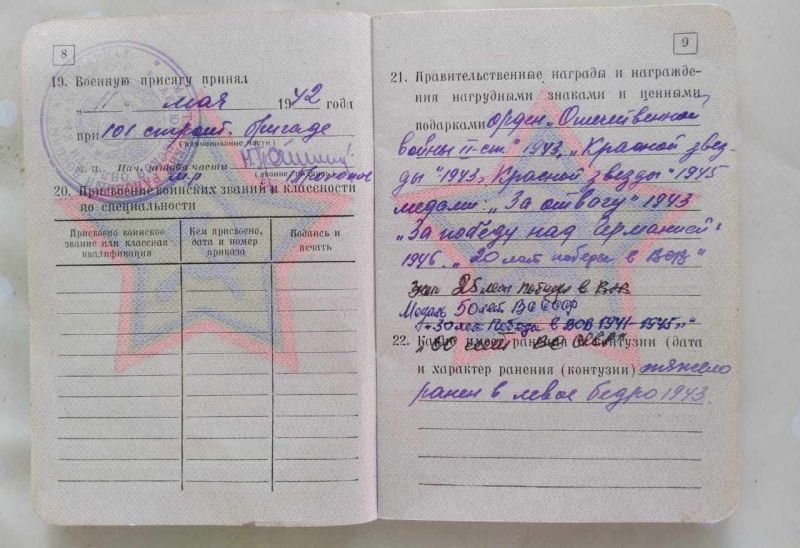 8
19. Военную присягу принял
„ 11 “ мая 1942 года
при 101 строит. бригаде
(наименование части)
м. п. Нач. штаба части
20. Присвоение воинских званий и классности
по специальности
Присвоено воинское звание или классная квалификация
Кем присвоено, дата и номер приказа
Подпись и печать
9
21. Правительственные награды и награжде-
ния нагрудными знаками и ценными
подарками орден „Отечественной
войны II ст" 1943, „Красной звез-
ды" 1943, „Красной звезды" 1945
медали: „За отвагу" 1943
„За победу над Германией"
1946. „20 лет победы в ВОВ"
Знак 25 лет победы в ВОВ
Медаль 50 лет ВС СССР
"30 лет Победы в ВОВ 1941-1945гг"
"60 лет ВС СССР"
22. Какие имеет ранения и контузии (дата
и характер ранения (контузии) тяжело
ранен в левое бедро 1943